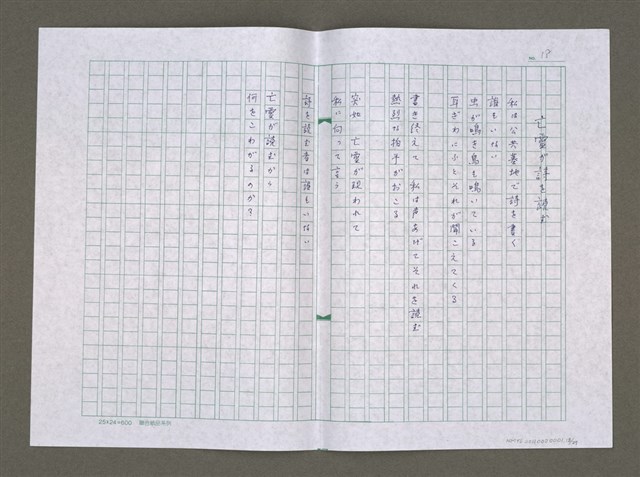 No. 18
亡霊が詩を読む
私は公共墓地で詩を書く
誰もいない
虫が鳴き鳥も鳴いている
耳ぎわにふとそれが聞こえてくる
書き終えて 私は声あげてそれを読む
熱烈な拍手がおこる
突如 亡霊が現われて
私に向って言う
詩を読む者は誰もいない
亡霊が読むから
何をこわがるのか?
25×24=600